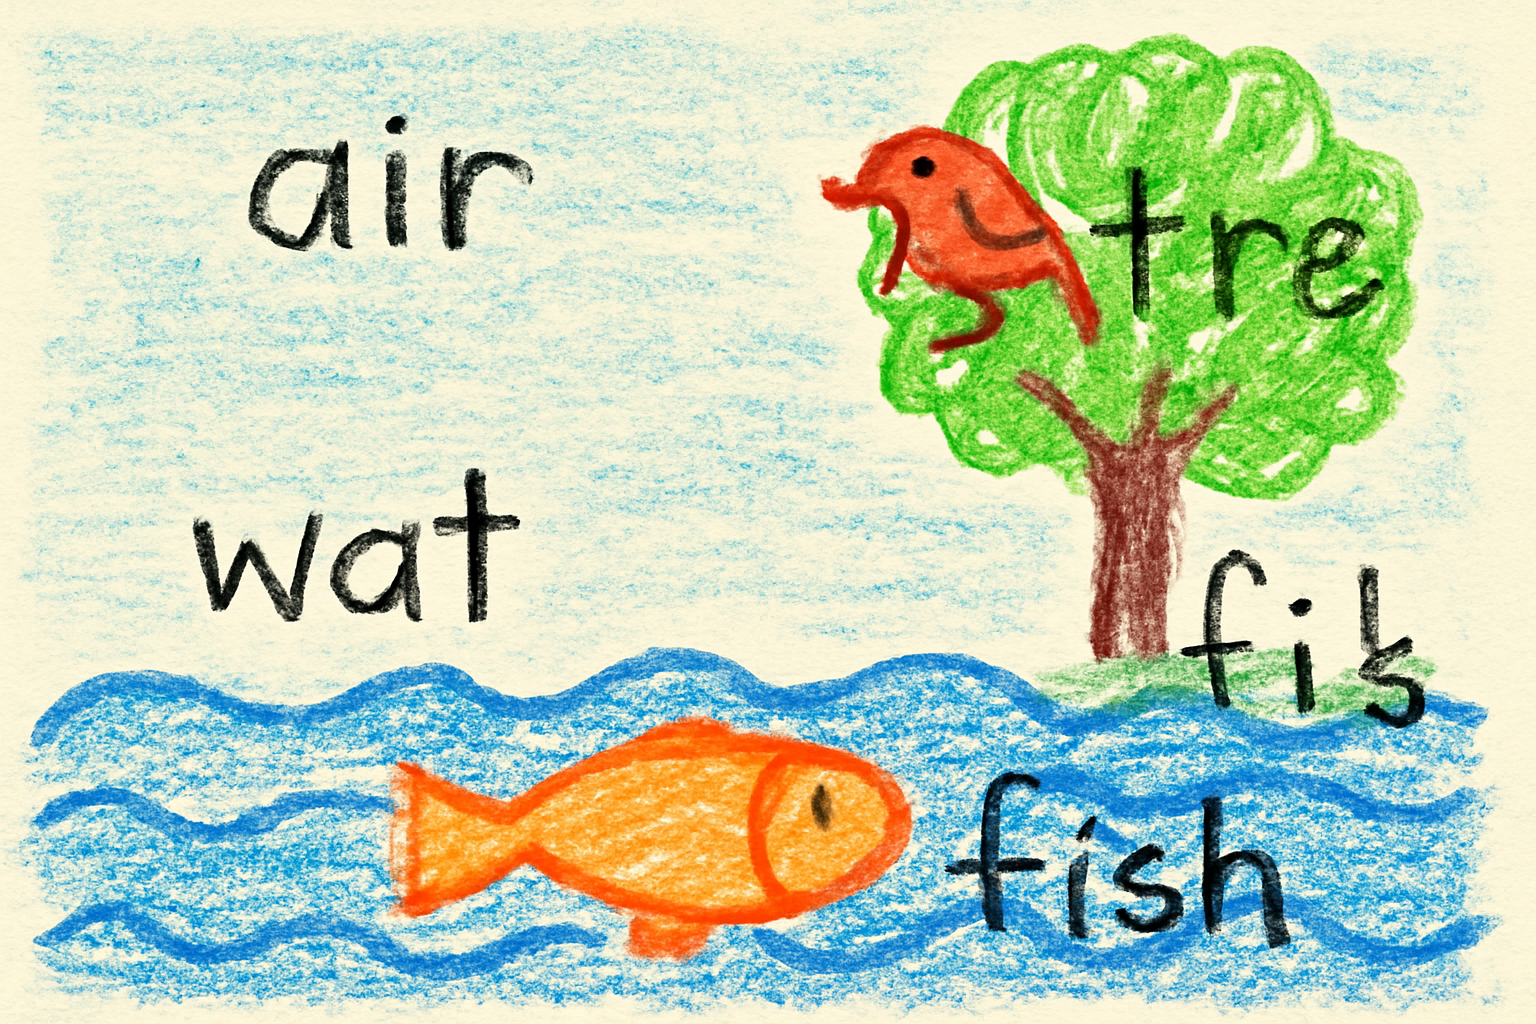 air
tre
wat
fish